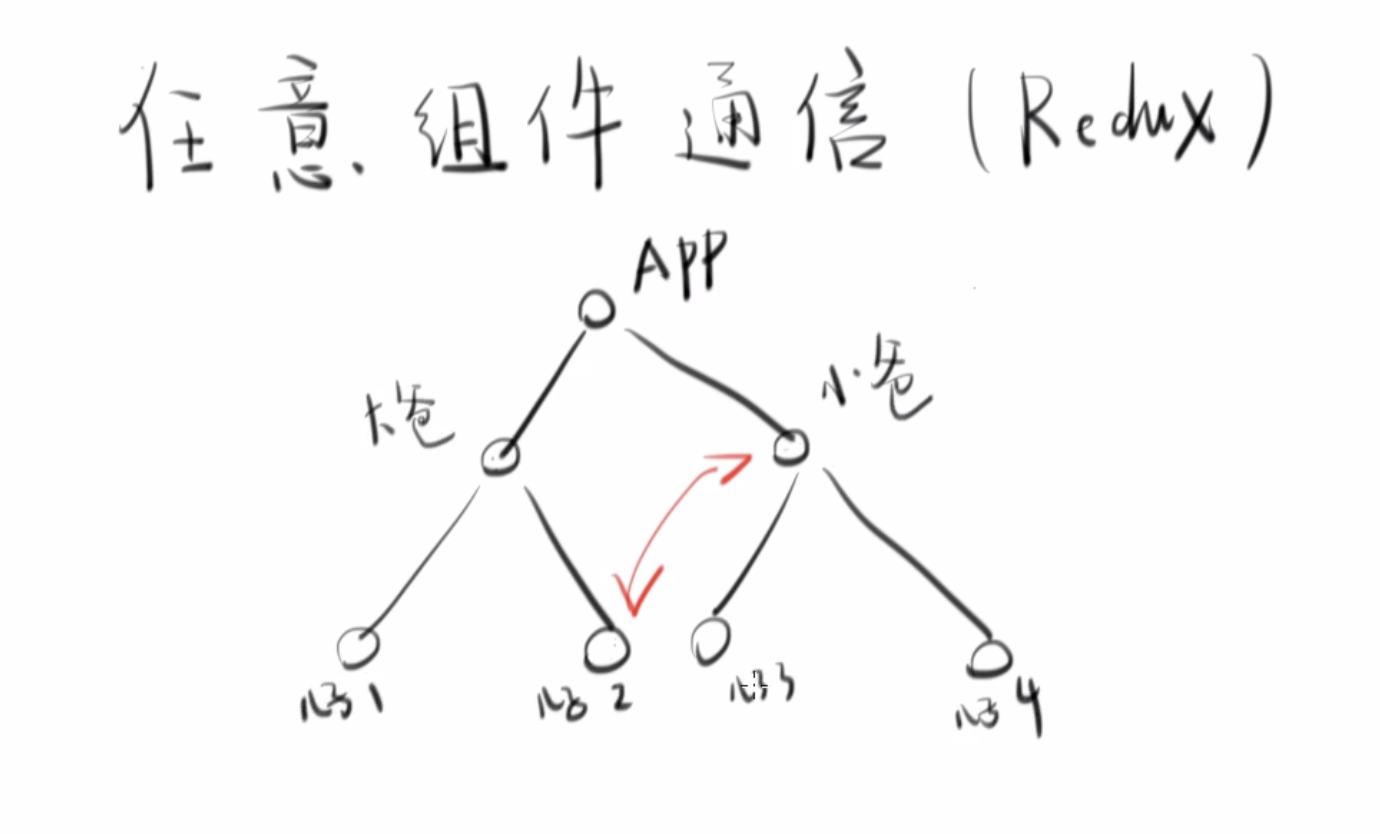 任意组件通信 (Redux)
APP
大爸
小爸
儿子1
儿子2
儿子3
儿子4